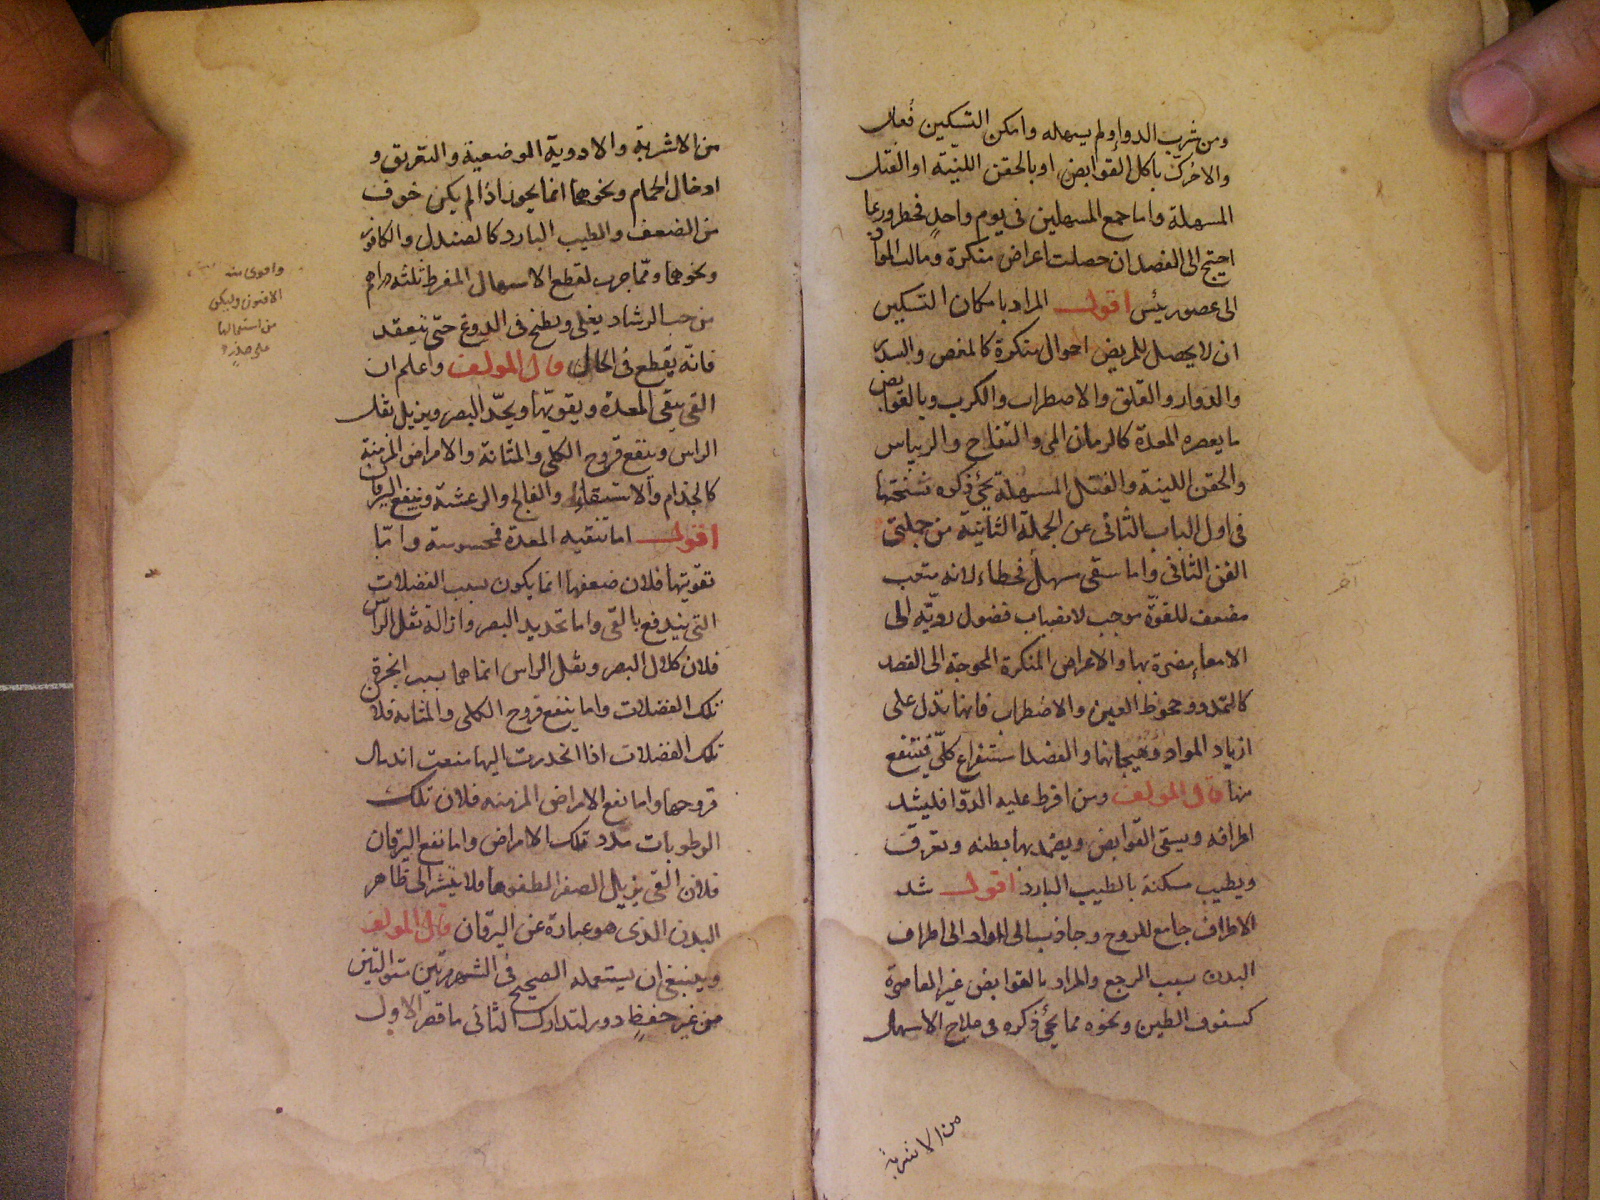 ومن شرب الدواء ولم يسهله وامكن التسكين فعل
والا حرك باكل القوابض او بالحقن اللينة او الفتل
المسهلة واما جمع المسهلين فى يوم واحد فخطر وربما
احتيج الى الفصد ان حصلت اعراض منكرة ومالت المواد
الى عضو رئيس اقول المراد بامكان التسكين
ان لا يحصل للمريض احوال منكرة كالمغص والسدر
والدوار والقلق والاضطراب والكرب وبالقوابض
ما يعصر المعدة كالرمان المز والتفاح والريباس
والحقن اللينة والفتل المسهلة يجئ ذكره نسختها
فى اول الباب الثانى من الجملة الثانية من جملتى
الفن الثانى واما سقى مسهل فخطاء لانه متعب
مضعف للقوة موجب لانصباب فضول ردية الى
الامعاء مضرة بها والاعراض المنكرة المحوجة الى الفصد
كالتمدد وجحوظ العين والاضطراب فانها تدل على
ازياد المواد وهيجانها والفصد استفراغ كلى فينفع
منها قال المؤلف ومن افرط عليه الدواء فليشد
اطرافه ويسقى القوابض ويضمد بها بطنه ويعرق
ويطيب مسكنه بالطيب البارد اقول شد
الاطراف جامع للروح وجاذب الى المواد الى اطراف
البدن بسبب الوجع والمراد بالقوابض غير العاصرة
كسفوف الطين ونحوه مما يجئ ذكره فى علاج الاسهال
من الاشربة
آخر
من الاشربة والادوية الموضعية والتعريق و
ادخال الحمام ونحوهما انما يجوز اذا لم يكن خوف
من الضعف والطيب البارد كالصندل والكافور
ونحوهما ومما جرب لقطع الاسهال المفرط ثلثة دراهم
من حب الرشاد يغلى ويطبخ فى الدوغ حتى ينعقد
فانه يقطع فى الحال قال المؤلف واعلم ان
القئ ينقى المعدة ويقويها ويحد البصر ويزيل ثقل
الراس وينفع قروح الكلى والمثانة والامراض المزمنة
كالجذام والاستسقاء والفالج والرعشة وينفع اليرقان
اقول اما تنقيه المعدة فمحسوسة واما
تقويتها فلان ضعفها انما يكون بسبب الفضلات
التى يندفع بالقئ واما تحديد البصر وازالة ثقل الراس
فلان كلال البصر وثقل الراس انما هما بسبب ابخرة
تلك الفضلات واما ينفع قروح الكلى والمثانة فلان
تلك الفضلات اذا انحدرت اليها منعت اندمال
قروحها واما نفع الامراض المزمنه فلان تلك
الرطوبات مدد تلك الامراض واما نفع اليرقان
فلان القئ يزيل الصفرا لطفوها فلا ينتشر الى ظاهر
البدن الذى هو عبارة عن اليرقان قال المؤلف
وينبغى ان يستعمله الصحيح فى الشهر مرتين متواليتين
من غير حفظ دور ليتدارك الثانى ما قصر الاول
واقوى منه
الافيون وليكن
من استعمالها
على حذر